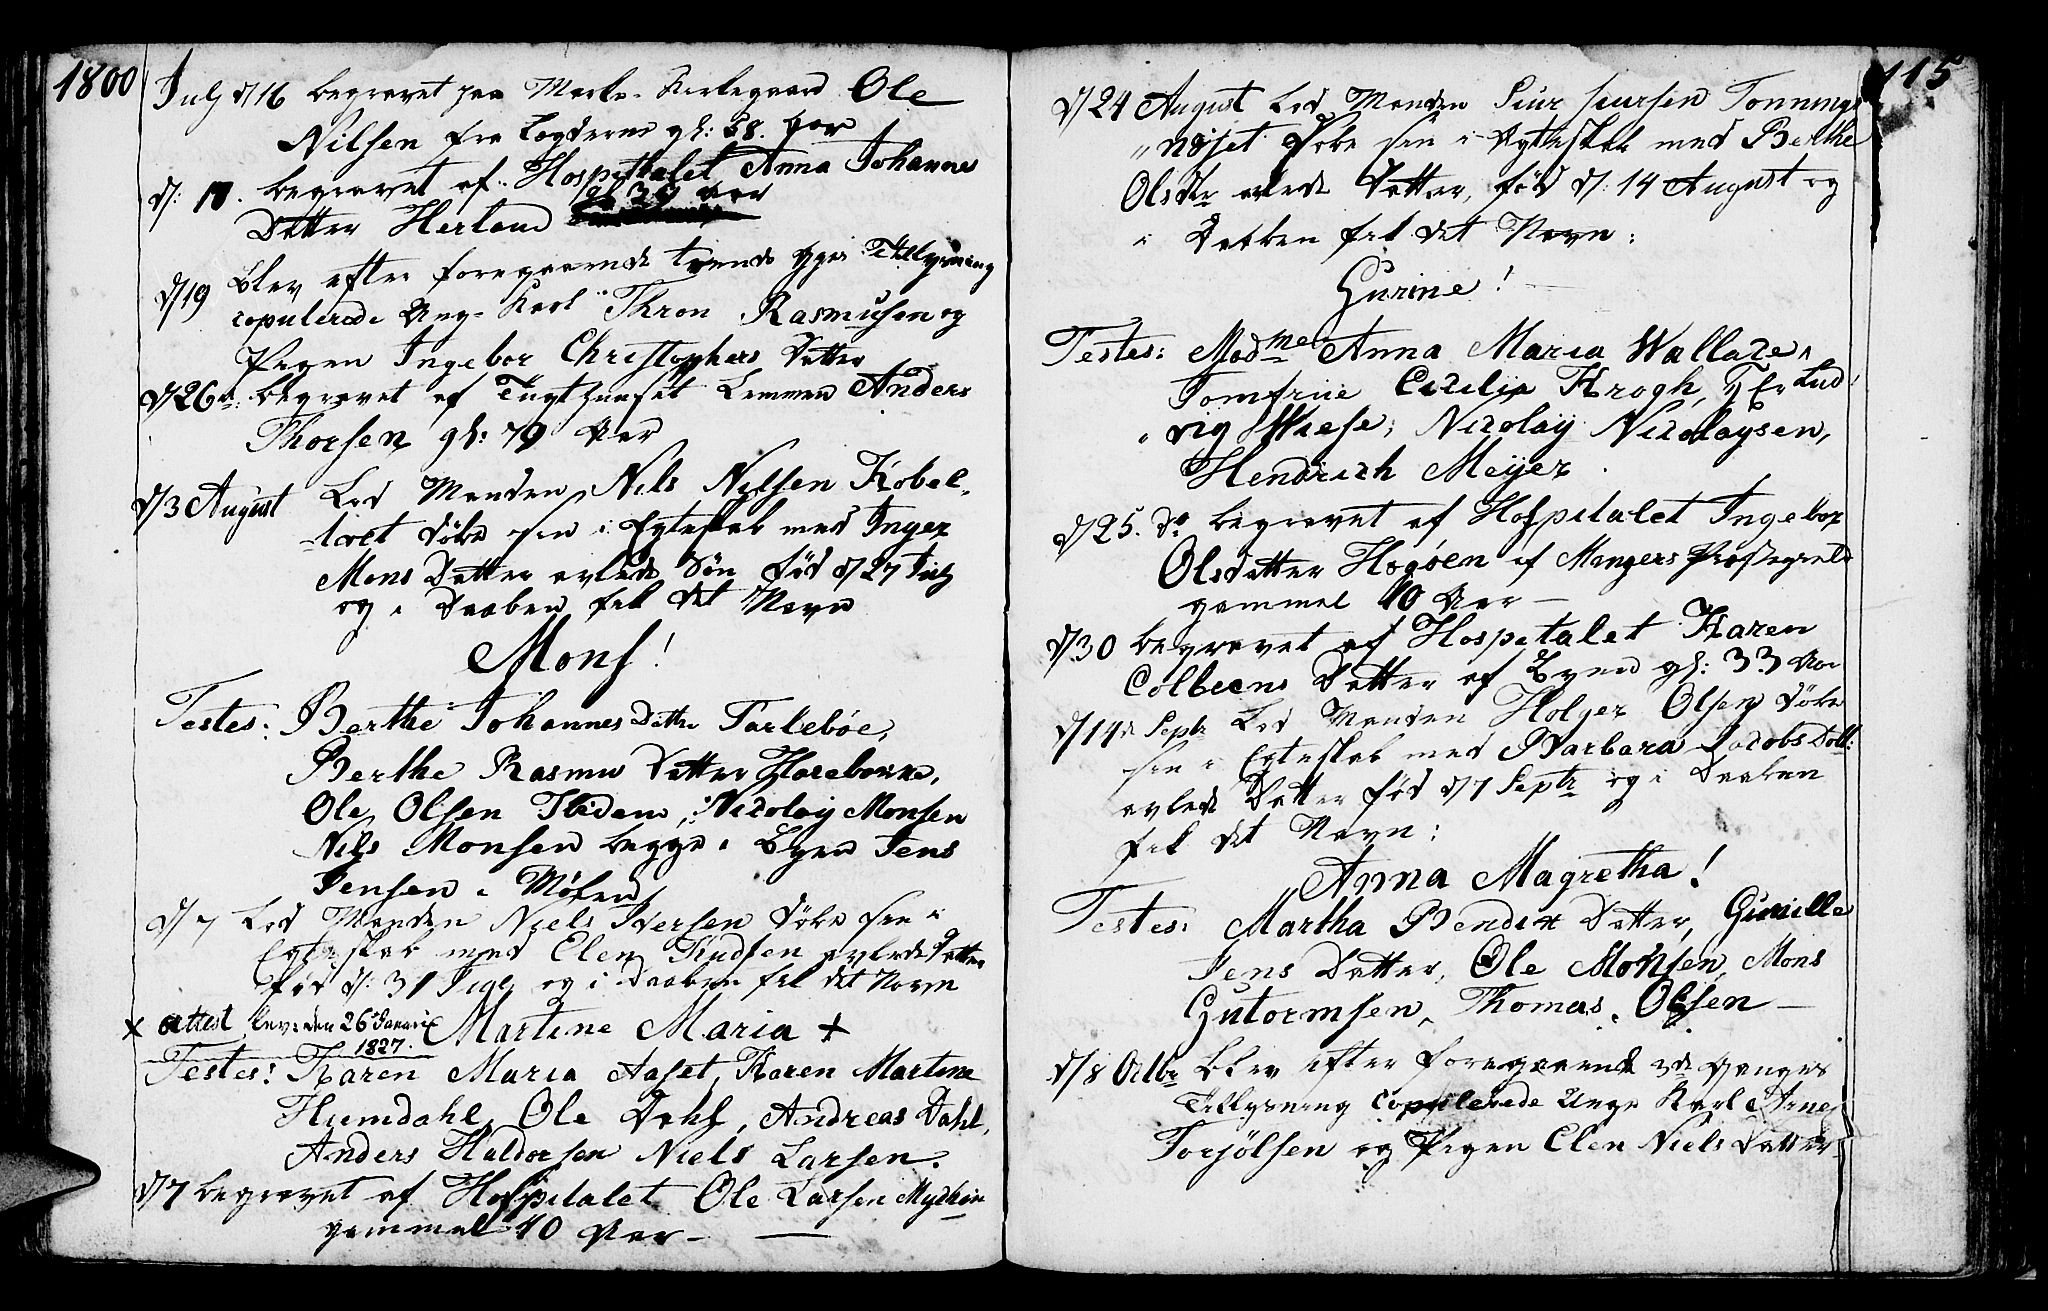 1800
July d/16 begravet paa Marke-Kirkegaard Ole
Nilsen fra Løgderne gl: 58. Aar
d: 17. begravet af Hospitalet Anna Johanne
gl 39 aar
Datter Herland
d/19 Blev efter foregaaende trende Gges Tillysning
copulerede Ung-Karl Thron Rasmusen og
Pigen Ingebor Christophers Datter
d/26de begravet af Tugthuuset Lemmen Anders
Thorsen gl: 79 Aar
d/3 August Lod Manden Nils Nilsen Kobel-
-tvet døbe sin i Egteskab med Inger
Mons Datter avlede Søn fød d/27 July
og i Daaben fik det Navn
Mons!
Testes: Berthe Johannes Datter Tarlebøe,
Berthe Rasmus Datter
Ole Olsen Ibidem, Nicolay Monsen
Nils Monsen begge i Byen Jens
Jensen i Møhlen
d/7 Lod Manden Niels Iversen døbe sin i
Egteskab med Elen Knudsen avlede Datter
fød d: 31 July og i Daaben fik det Navn
x attest lev: den 26 Januari Martine Maria +
1827.
Testes: Karen Maria Aaset, Karen Martine
Humdahl, Ole Dahl, Andreas Dahl,
Anders Haldorsen Niels Larsen.
d/7 begravet af Hospitalet Ole Larsen
gammel 40 Aar -
115
d/24 August Lod Manden Siur Siursen Tonnings
"næset døbe sin i Egteskab med Berthe
Olsdtr avlede Datter, fød d: 14 August og
i Daaben fik det Navn:
Gurine!
Testes: Madme Anna Maria Wallace,
Jomfrue Cicelia Krogh, Hr Lud
"vig Wiese, Nicolay Nicolaysen,
Hendrich Meyer.
d/25. do begravet af Hospitalet Ingebor
Olsdatter Hogøen af Mangers Præstegield
gammel 40 Aar -
d/30 begravet af Hospitalet Karen
Colbeens Datter af Byen gl: 33 Aar
d/14de Septr Lod Manden Holger Olsen døbe
sin i Egteskab med Barbara Jacobs Datt:
avlede Datter fød d/7 Septr og i Daaben
fik det Navn:
Anna Magretha!
Testes: Martha Bendix Datter, Gunille
Jens Datter, Ole Monsen, Mons
Gutormsen, Thomas Olsen -
d/8 Octbr Blev efter foregaaende 3de Ganges
Tillysning Copulerede Unge Karl Arne
Torjølsen og Pigen Elen Niels Datter